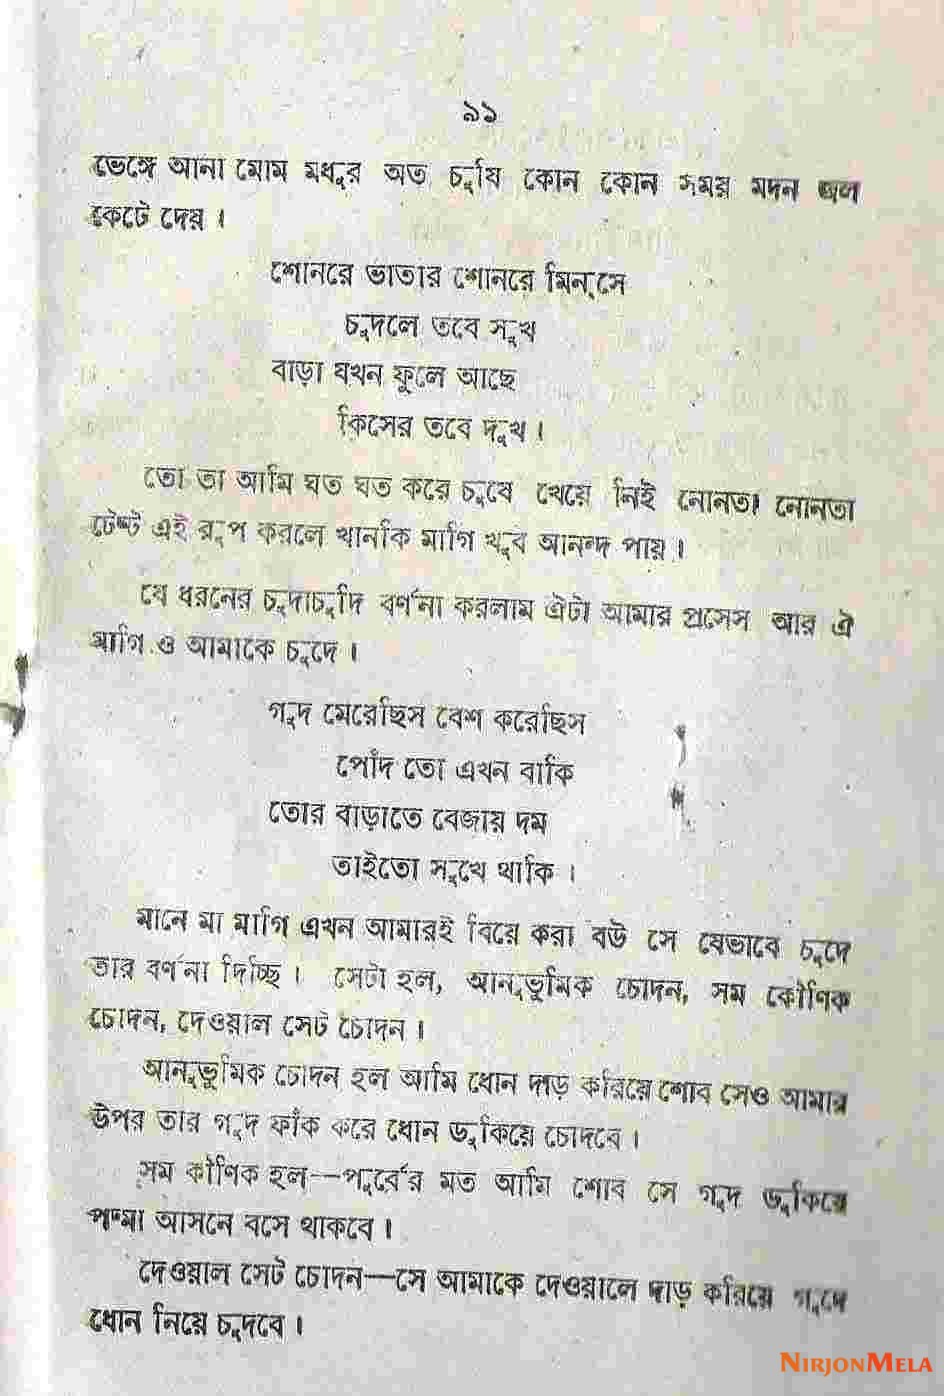 ৯১
ভেঙ্গে আনা মোম মধুর অত চুষি কোন কোন সময় মদন জল
কেটে দেয়।
শোনরে ভাতার শোনরে মিনসে
চুদলে তবে সুখ
বাড়া যখন ফুলে আছে
কিসের তবে দুখ।
তো তা আমি ঘত ঘত করে চুষে খেয়ে নিই নোনতা নোনতা
টেষ্ট এই রূপ করলে খানকি মাগি খুব আনন্দ পায়।
যে ধরনের চুদাচুদি বর্ণনা করলাম ঐটা আমার প্রসেস আর ঐ
মাগি ও আমাকে চুদে।
গুদ মেরেছিস বেশ করেছিস
পোঁদ তো এখন বাকি
তোর বাড়াতে বেজায় দম
তাইতো সুখে থাকি।
মানে মা মাগি এখন আমারই বিয়ে করা বউ সে যেভাবে চুদে
তার বর্ণনা দিচ্ছি। সেটা হল, আনুভুমিক চোদন, সম কৌণিক
চোদন, দেওয়াল সেট চোদন।
আনুভুমিক চোদন হল আমি ধোন দাড় করিয়ে শোব সেও আমার
উপর তার গুদ ফাঁক করে ধোন ঢুকিয়ে চোদবে।
সম কৌণিক হল—পূর্বের মত আমি শোব সে গুদ ঢুকিয়ে
পদ্মা আসনে বসে থাকবে।
দেওয়াল সেট চোদন—সে আমাকে দেওয়ালে দাড় করিয়ে গুদে
ধোন নিয়ে চুদবে।
NIRJONMELA